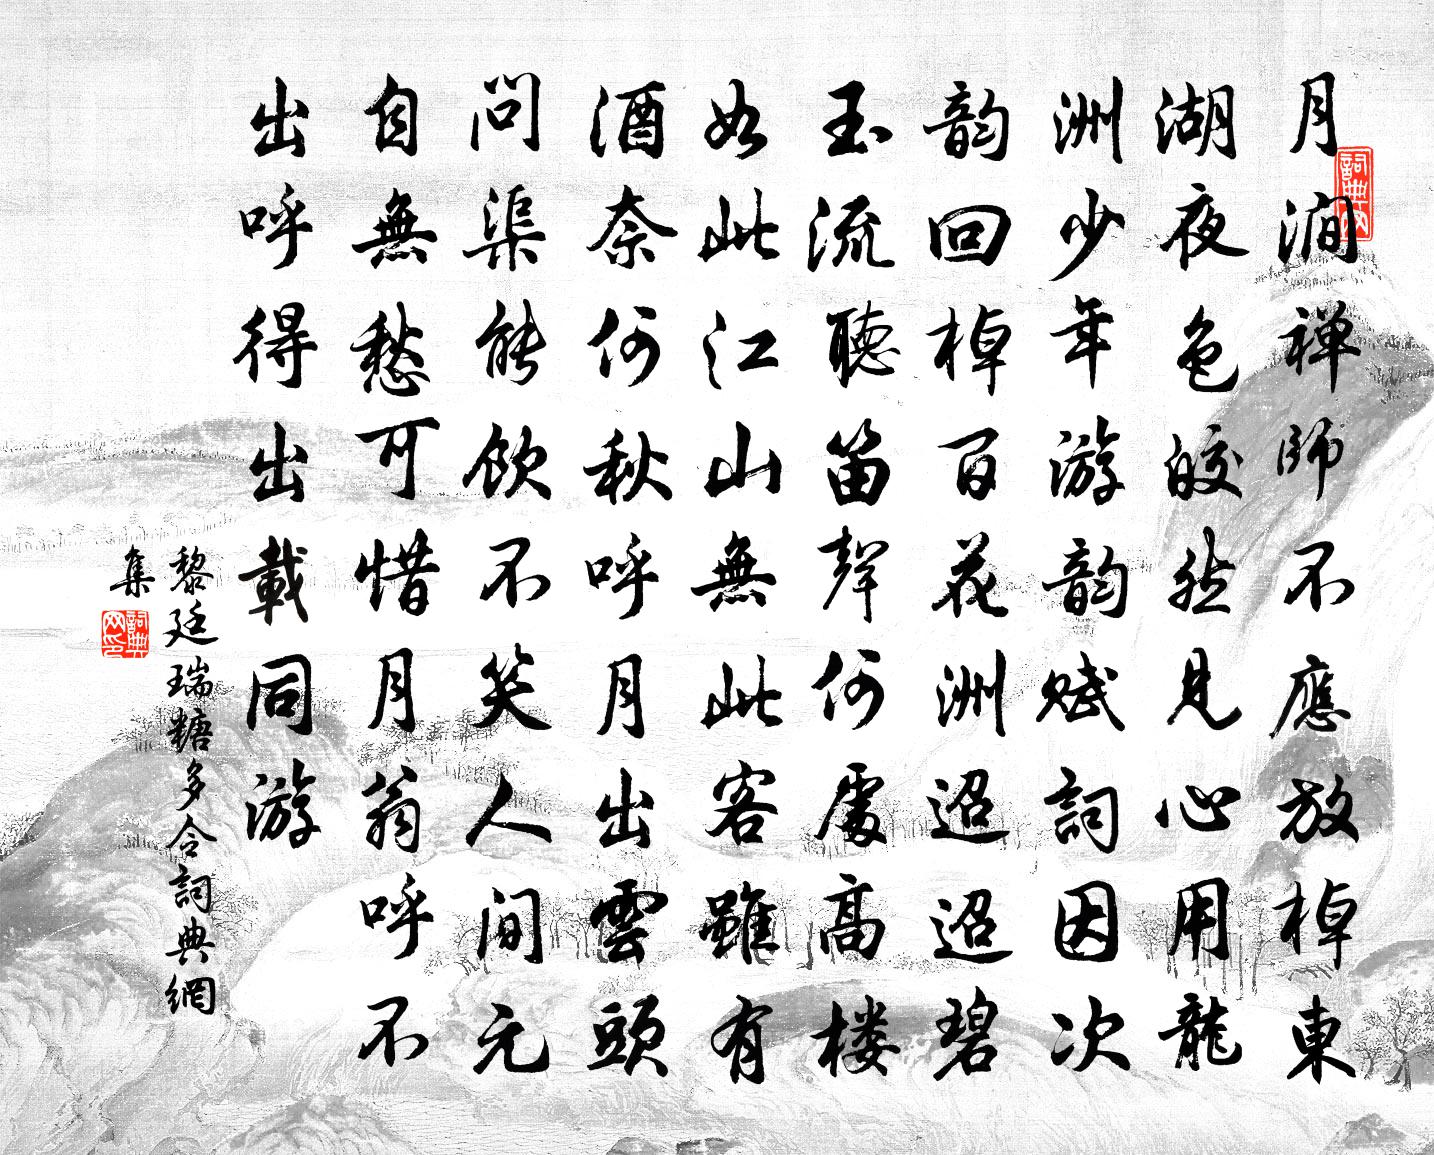 月澗禅師不應放棹東
湖夜色皎然見心用龍
洲少年游韵賦詞因次
韵回棹百花洲迢迢碧
玉流聽笛聲何處高楼
如此江山無此客雖有
酒奈何秋呼月出雲頭
問渠能飲不笑人间元
自無愁可惜月翁呼不
出呼得出載同游
黎廷瑞糖多令詞典網
集
詞典网
詞典网印